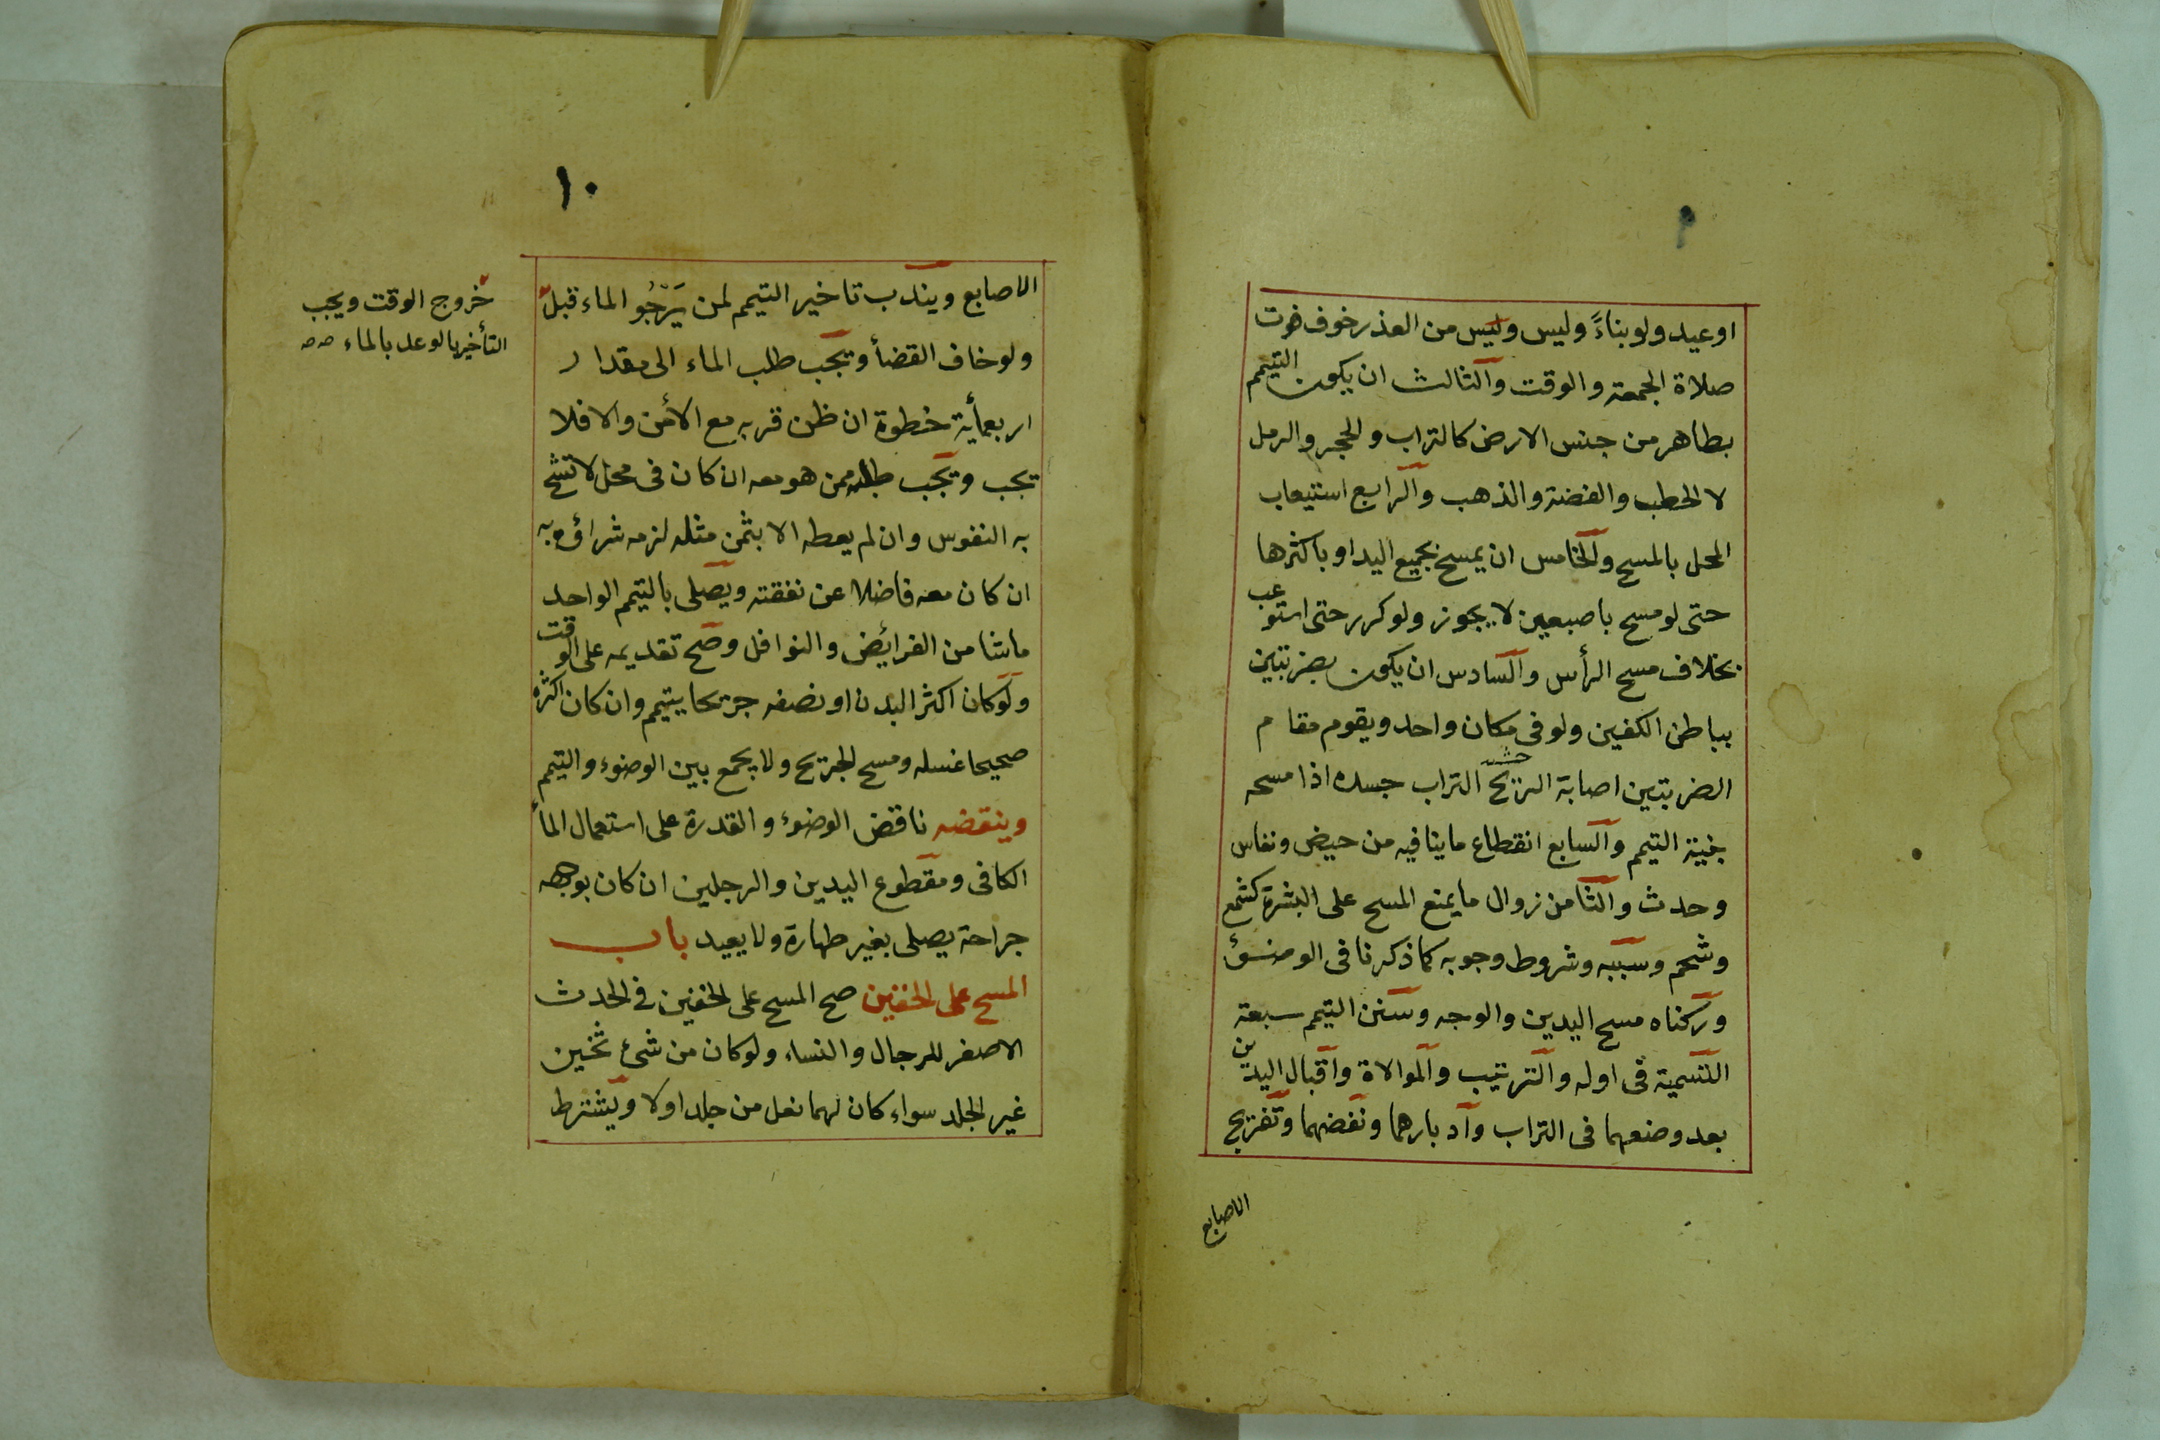 ٩
او عيد ولو بناءً وليس وليس من العذر خوف فوت
صلاة الجمعة والوقت والثالث ان يكون التيمم
بطاهر من جنس الارض كالتراب والحجر والرمل
لا الحطب والفضة والذهب والرابع استيعاب
المحل بالمسح والخامس ان يمسح بجميع اليد او باكثرها
حتى لو مسح باصبعين لا يجوز ولو كرر حتى استوعب
بخلاف مسح الرأس والسادس ان يكون بضربتين
بباطن الكفين ولو فى مكان واحد ويقوم مقام
الضربتين اصابة التراب جسده اذا مسحه
بنية التيمم والسابع انقطاع ما ينافيه من حيض ونفاس
وحدث والثامن زوال ما يمنع المسح على البشرة كشمع
وشحم وسببه وشروط وجوبه كما ذكرنا فى الوضوء
وركناه مسح اليدين والوجه وسنن التيمم سبعة
التسمية فى اوله والترتيب والموالاة واقبال اليدين
بعد وضعهما فى التراب وادبارهما ونفضهما وتفريج
الاصابع
١٠
الاصابع ويندب تاخير التيمم لمن يَرْجُو الماء قبل
خروج الوقت ويجب
التأخير بالوعد بالماء صه صه
ولو خاف القضأ ويجب طلب الماء الى مقدار
اربعمأية خطوة ان ظن قربه مع الأمن والا فلا
يجب ويجب طلبه ممن هو معه ان كان فى محل لا تشح
به النفوس وان لم يعطه الا بثمن مثله لزمه شراؤه به
ان كان معه فاضلا عن نفقته ويصلى بالتيمم الواحد
ماشا من الفرائض والنوافل وصح تقديمه على الوقت
ولو كان اكثر البدن او نصفه جريحا يتيمم وان كان اكثره
صحيحا غسله ومسح الجريح ولا يجمع بين الوضوء والتيمم
وينقضه ناقض الوضوء والقدرة على استعمال المأ
الكافى ومقطوع اليدين والرجلين ان كان بوجهه
جراحة يصلى بغير طهارة ولا يعيد باب
المسح على الخفين صح المسح على الخفين فى الحدث
الاصغر للرجال والنساء ولو كان من شئ ثخين
غير الجلد سواء كان لهما نعل من جلد اولا ويشترط